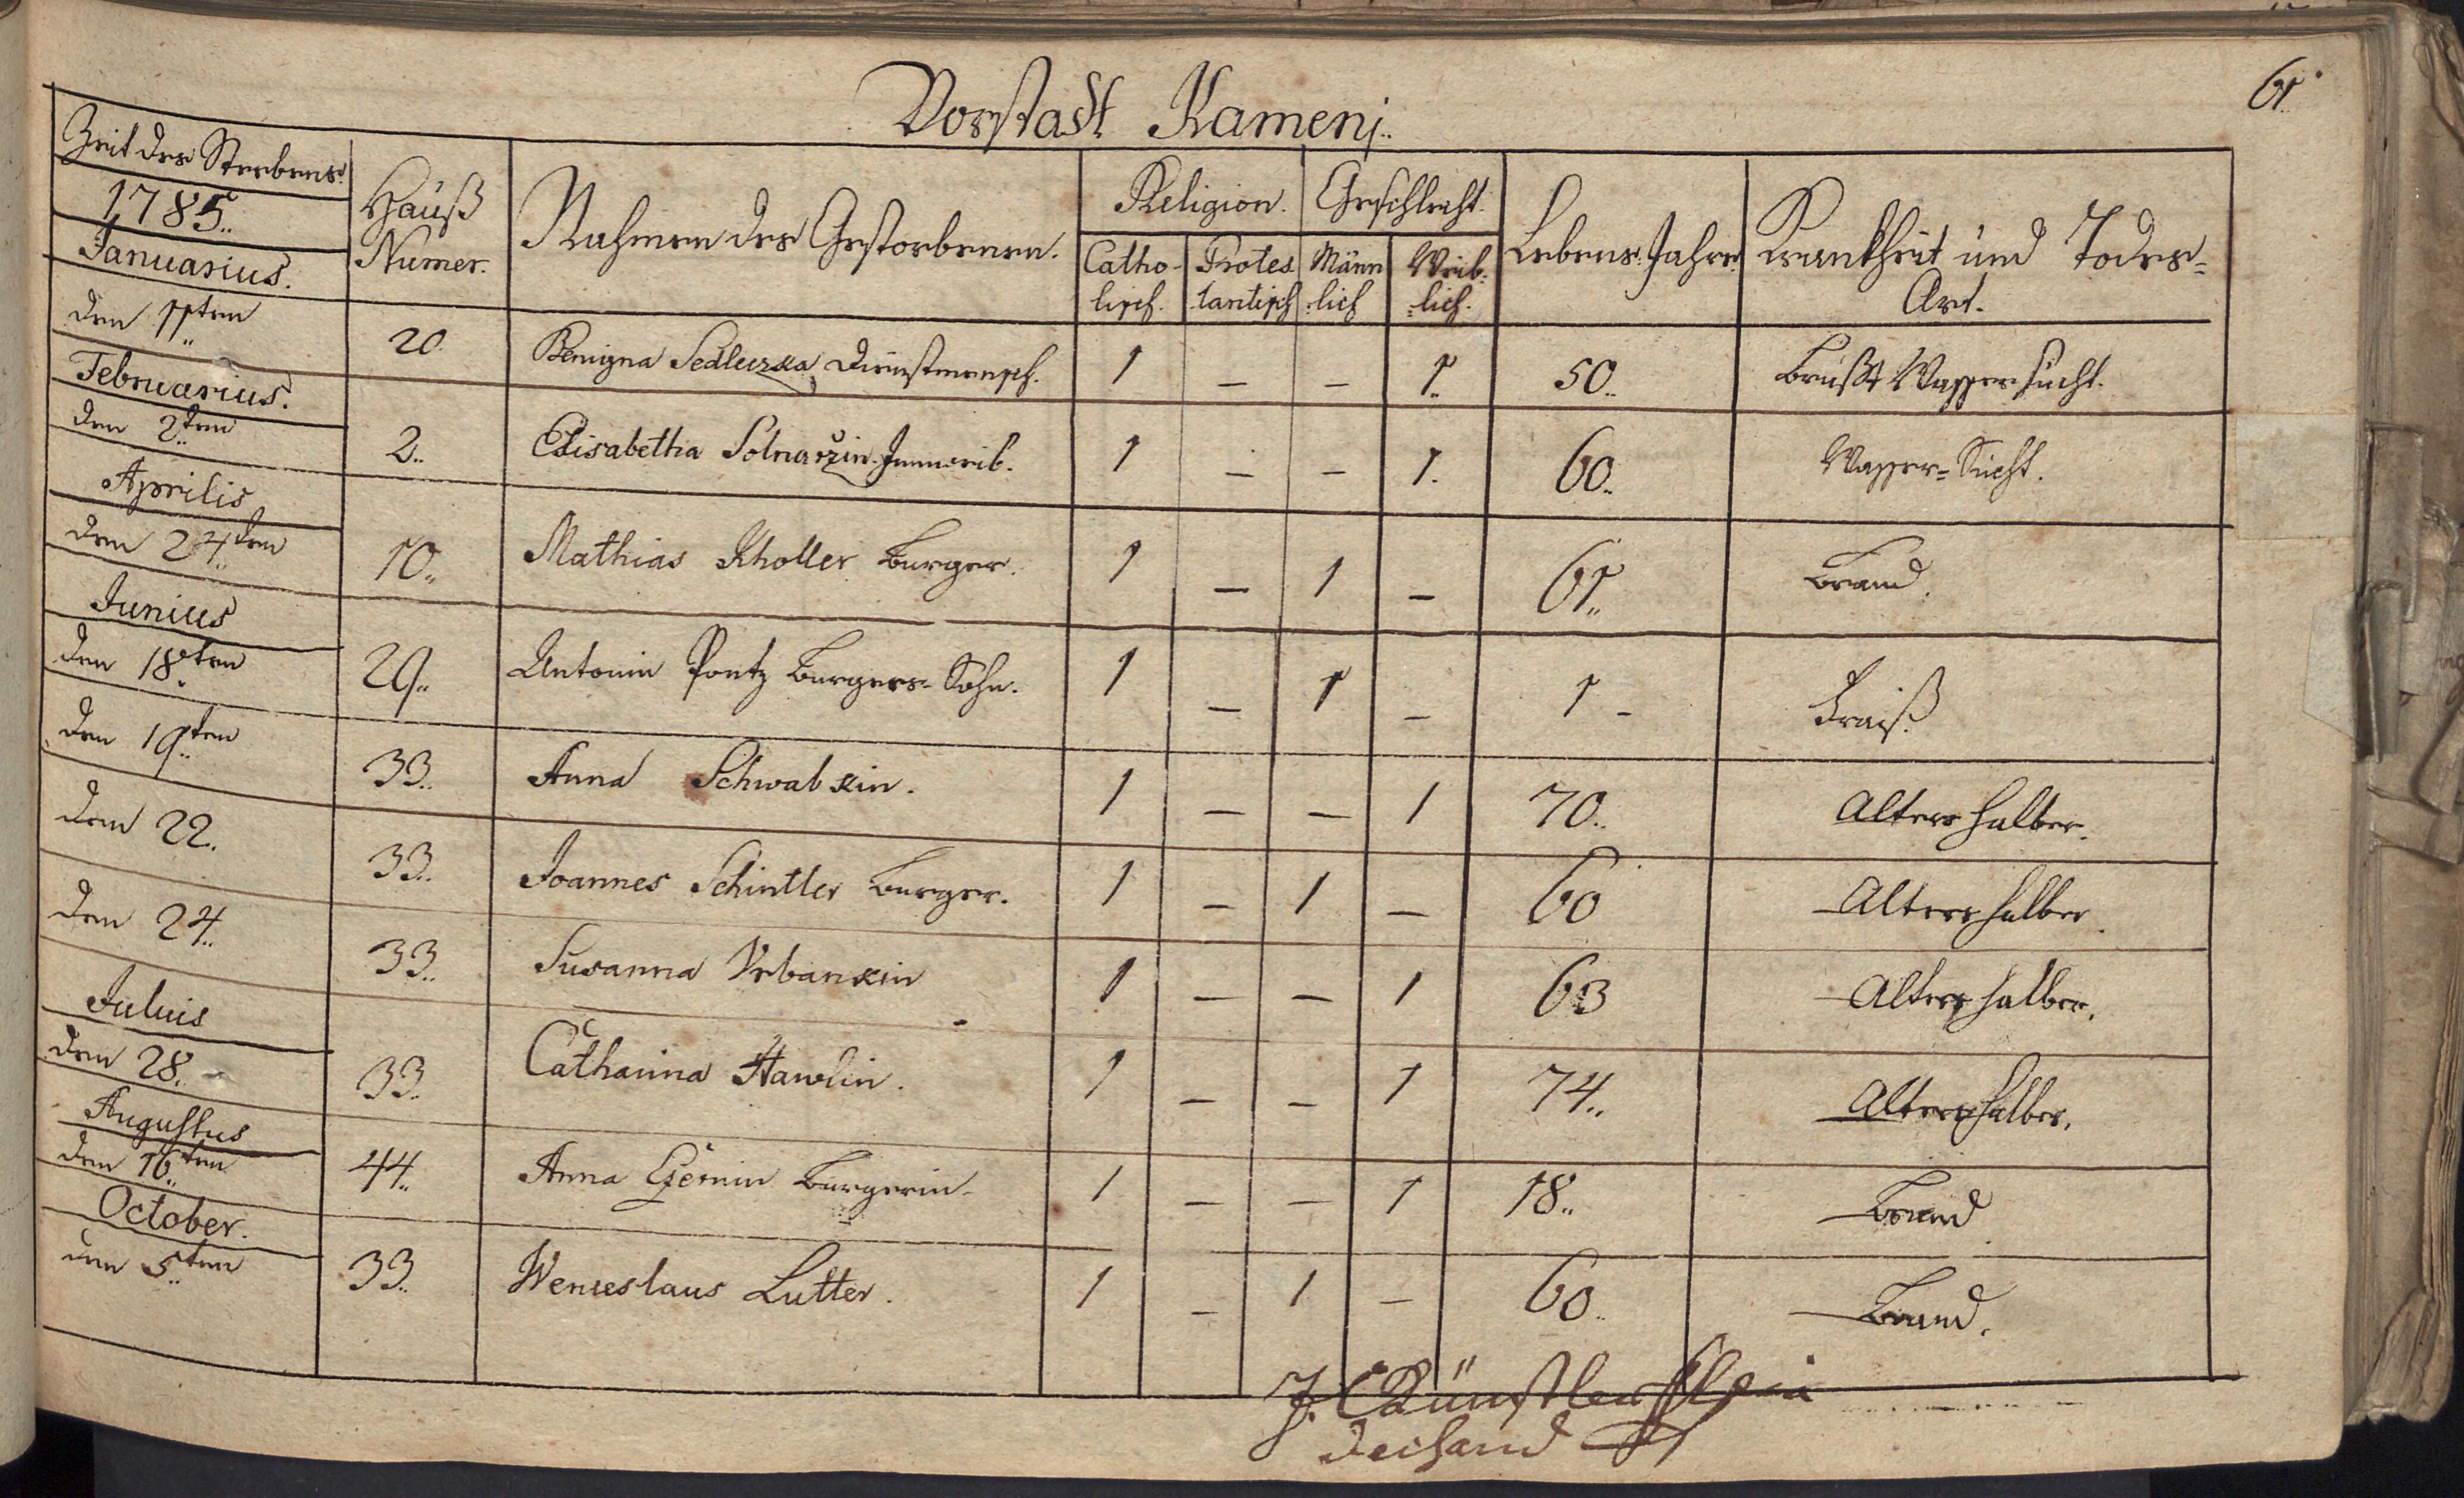 61.
Vorstadt Kamenj.
Zeit des Sterbens.
1785.
Hauß Numer.
Nahmen des Gestorbenen.
Religion.
Geschlecht.
Catho-lisch.
Protes tantisch
Männ lich
Weib-lich.
Lebens-Jahre
Krankheit und Todes=
Art.
Januarius.
den 11ten 20. Benigna Sedleczka Dienstmensch. 1 – – 1. 50. Brust Wassersucht.
Februarius.
den 2ten 2. Elisabetha Solnarzin Innweib. 1 – – 1. 60. Wasser=Sucht.
Aprilis
den 24ten 10. Mathias Kholler burger. 1 – 1 – 61. brand.
Junius
den 18ten 29. Antonin Pontz burgers=Sohn. 1 – 1 – 1 – Fraiß
den 19ten 33. Anna Schwabkin. 1 – – 1 70. Alters halber.
den 22. 33. Joannes Schintler burger. 1 – 1 – 60 Alters halber.
den 24. 33. Susanna Urbankin 1 – – 1 63 Alters halber.
Juluis
den 28. 33. Catharina Hawlin. 1 – – 1 74. Alters halber.
Augustus
den 16ten 44. Anna burgerin. 1 – – 1 18. brand
October.
den 5ten 33. Wenceslaus Lutter. 1 – 1 – 60. brand.
J. Künstler
dechand